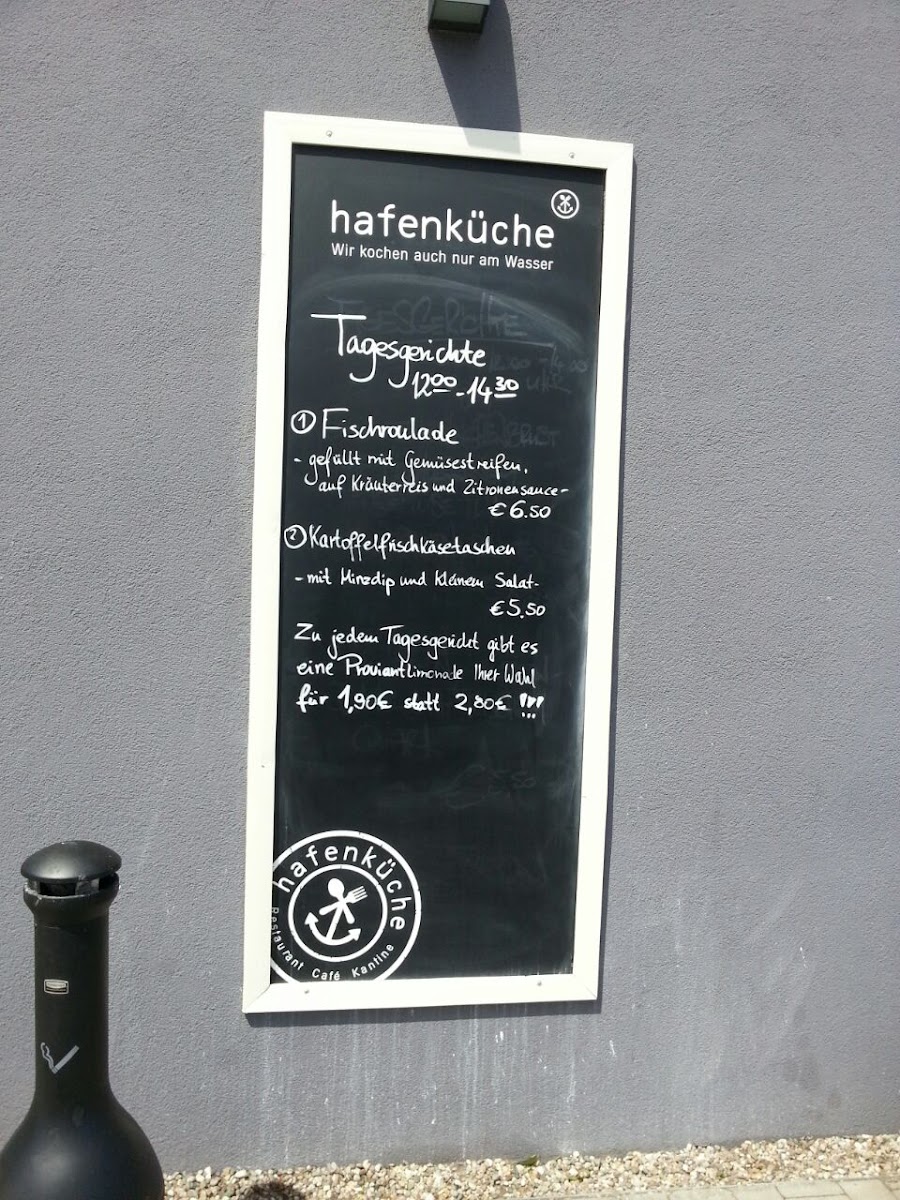 hafenküche
Wir kochen auch nur am Wasser
Tagesgerichte
12 00 - 14 30
① Fischroulade
- gefüllt mit Gemüsestreifen,
auf Kräuterreis und Zitronensauce-
€ 6.50
② Kartoffelfrischkäsetaschen
- mit Minzdip und kleinem Salat-
€ 5.50
Zu jedem Tagesgericht gibt es
eine Proviantlimonade Ihrer Wahl
für 1,90€ statt 2,80€ !!!
hafenküche
Restaurant Café Kantine